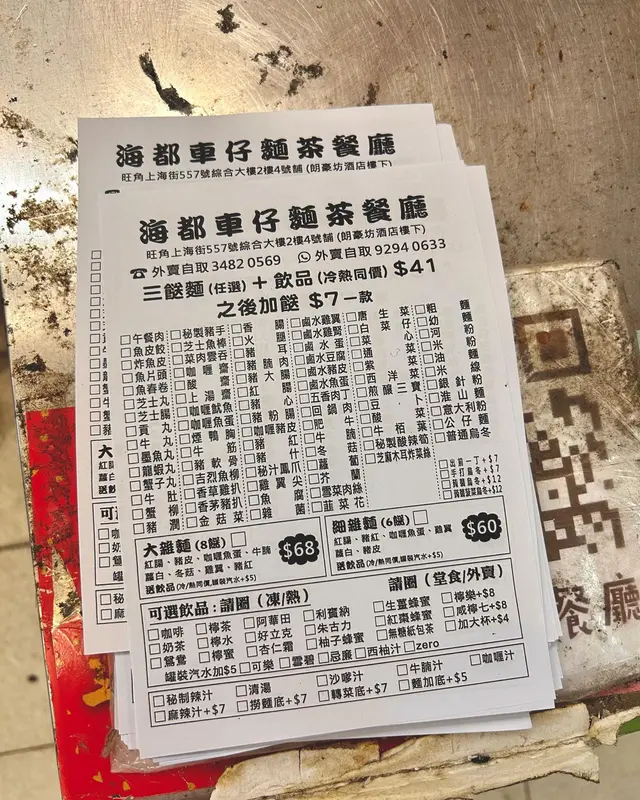 海都車仔麵茶餐廳
旺角上海街557號綜合大樓2樓4號舖 (朗豪坊酒店樓下)
海都車仔麵茶餐廳
旺角上海街557號綜合大樓2樓4號舖 (朗豪坊酒店樓下)
外賣自取 3482 0569 外賣自取 9294 0633
三餸麵 (任選) + 飲品 (冷熱同價) $41
之後加餸 $7一款
午餐肉
魚皮餃
炸魚皮
魚片頭
魚春卷
芝士丸
貢丸
牛丸
墨魚丸
龍蝦丸
蟹子丸
牛肚
蟹柳
豬潤
秘製豬手
芝士腸
咖喱魷魚
煙鴨胸
牛筋
豬軟骨
吉烈魚柳
香草雞扒
香茅豬扒
金菇菜
香腸
火腿
豬耳
豬大腸
豬心
豬粉腸
咖喱豬皮
豬紅
豬什
豬汁鳳爪
魚腐
雜菌
鹵水雞翼
鹵水雞腎
鹵水豆腐
鹵水豬皮
鹵水魚蛋
五香肉丁
回鍋肉
肥牛
牛腩
冬菇
蘿蔔
芥蘭
雪菜肉絲
韮菜花
唐生菜
白菜仔
菜心
通菜
紫菜
西洋菜
煎釀三寶
豆卜
酸菜
牛柏葉
秘製酸辣筍
芝麻木耳炸菜絲
粗麵
幼麵
河粉
米粉
油麵
米線
銀針粉
淮山麵
意大利粉
公仔麵
普通烏冬
出前一丁+$7
手打烏冬+$7
大雜麵 (8餸)
紅腸、豬皮、咖喱魚蛋、牛腩
蘿白、冬菇、雞翼、豬紅
送飲品 (冷/熱同價,罐裝汽水+$5)
$68
細雜麵 (6餸)
紅腸、豬紅、咖喱魚蛋、雞翼
蘿白、豬皮
送飲品 (冷/熱同價,罐裝汽水+$5)
$60
可選飲品 : 請圈 (凍/熱) 請圈 (堂食/外賣)
咖啡 檸茶 阿華田 利賓納 生薑蜂蜜 檸樂+$8
奶茶 檸水 好立克 朱古力 紅棗蜂蜜 咸檸七+$8
鴛鴦 檸蜜 杏仁霜 柚子蜂蜜 無糖紙包茶 加大杯+$4
罐裝汽水加$5 可樂 雪碧 忌廉 西柚汁 zero
秘制辣汁 清湯 沙嗲汁 牛腩汁 咖喱汁
麻辣汁+$7 撈麵底+$7 轉菜底+$7 麵加底+$5
餐廳